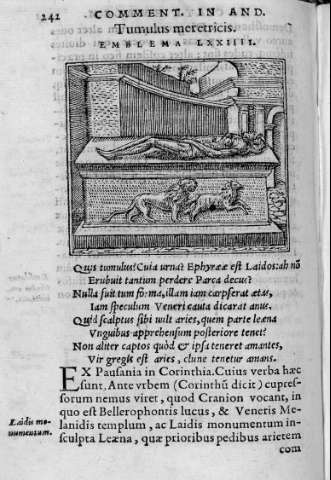 242 COMMENT. IN AND.
Tumulus meretricis.
EMBLEMA LXXIIII.
Quis tumulus? Cuia urna? Ephyrææ est Laidos: ah nõ
Erubuit tantum perdere Parca decus?
Nulla fuit tum forma, illam iam carpserat ætas,
Iam speculum Veneri cauta dicarat anus.
Quid scalptus sibi uult aries, quem parte leæna
Vnguibus apprehensum posteriore tenet?
Non aliter captos quòd & ipsa teneret amantes,
Vir gregis est aries, clune tenetur amans.
EX Pausania in Corinthia. Cuius verba hæc
sunt. Ante vrbem (Corinthũ dicit) cupres-
sorum nemus viret, quod Cranion vocant, in
quo est Bellerophontis lucus, & Veneris Me-
lanidis templum, ac Laidis monumentum in-
Laidis mo-
numentum.
sculpta Leæna, quæ prioribus pedibus arietem
com